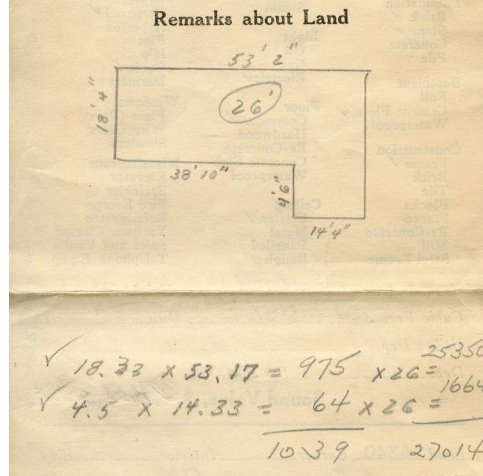 Remarks about Land
53' 2"
18' 4"
26'
38' 10"
4' 6"
14' 4"
✓ 18.33 x 53.17 = 975 x 26 = 25350
✓ 4.5 x 14.33 = 64 x 26 = 1664
1039 27014